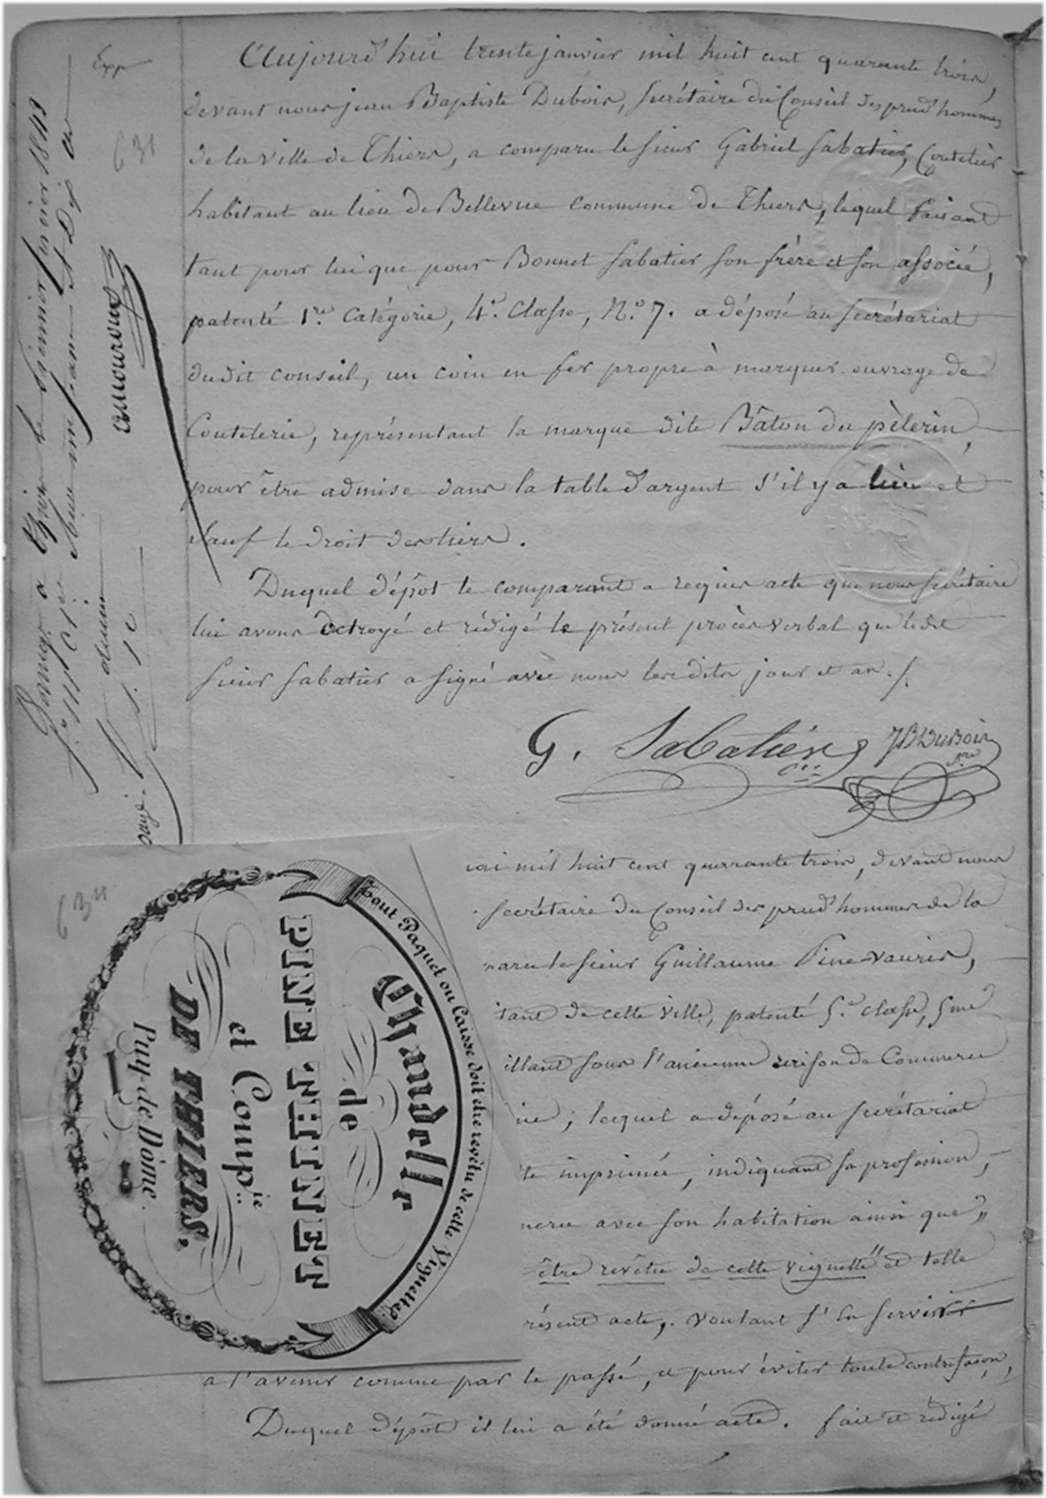 Exp
631
Aujourd'hui trente janvier mil huit cent quarante trois,
devant nous jean Baptiste Dubois, secrétaire du Conseil des prud'hommes
de la ville de Thiers, a comparu le sieur Gabriel Sabatier, Coutelier
habitant au lieu de Bellevue commune de Thiers, lequel faisant
tant pour lui que pour Bonnet Sabatier son frère et son associé,
patenté 1re Catégorie, 4e. Classe, N.o 7. a déposé au secrétariat
dudit conseil, un coin en fer propre à marquer ouvrage de
Coutelerie, représentant la marque dite Bâton du pèlerin,
pour être admise dans la table d'argent s'il y a lieu et
sauf le droit des tiers.
Duquel dépôt le comparant a requis acte que nous secrétaire
lui avons octroyé et rédigé le présent procès verbal que ledit
sieur Sabatier a signé avec nous lesdits jour et an ./.
G. Sabatier JB Dubois
Sre
mil huit cent quarante trois, devant nous
secrétaire du Conseil des prud'hommes de la
le sieur Guillaume Pine vauris,
tant de cette ville, patenté 5.e classe,
illant sous l'ancienne raison de Commerce
; lequel a déposé au secrétariat
te imprimée, indiquant sa profession,
nerie avec son habitation ainsi que "
être revêtu de cette vignette" et telle
résent acte, voulant s'en servir
a l'avenir comme par le passé, et pour éviter toute contrefaçon,
Duquel dépôt il lui a été donné acte. fait et rédigé
634
Tout Paquet ou Caisse doit être revêtu de cette Vignette
Chandelle
de
PINE THINET
et Comp.ie
DE THIERS,
Puy-de-Dôme.